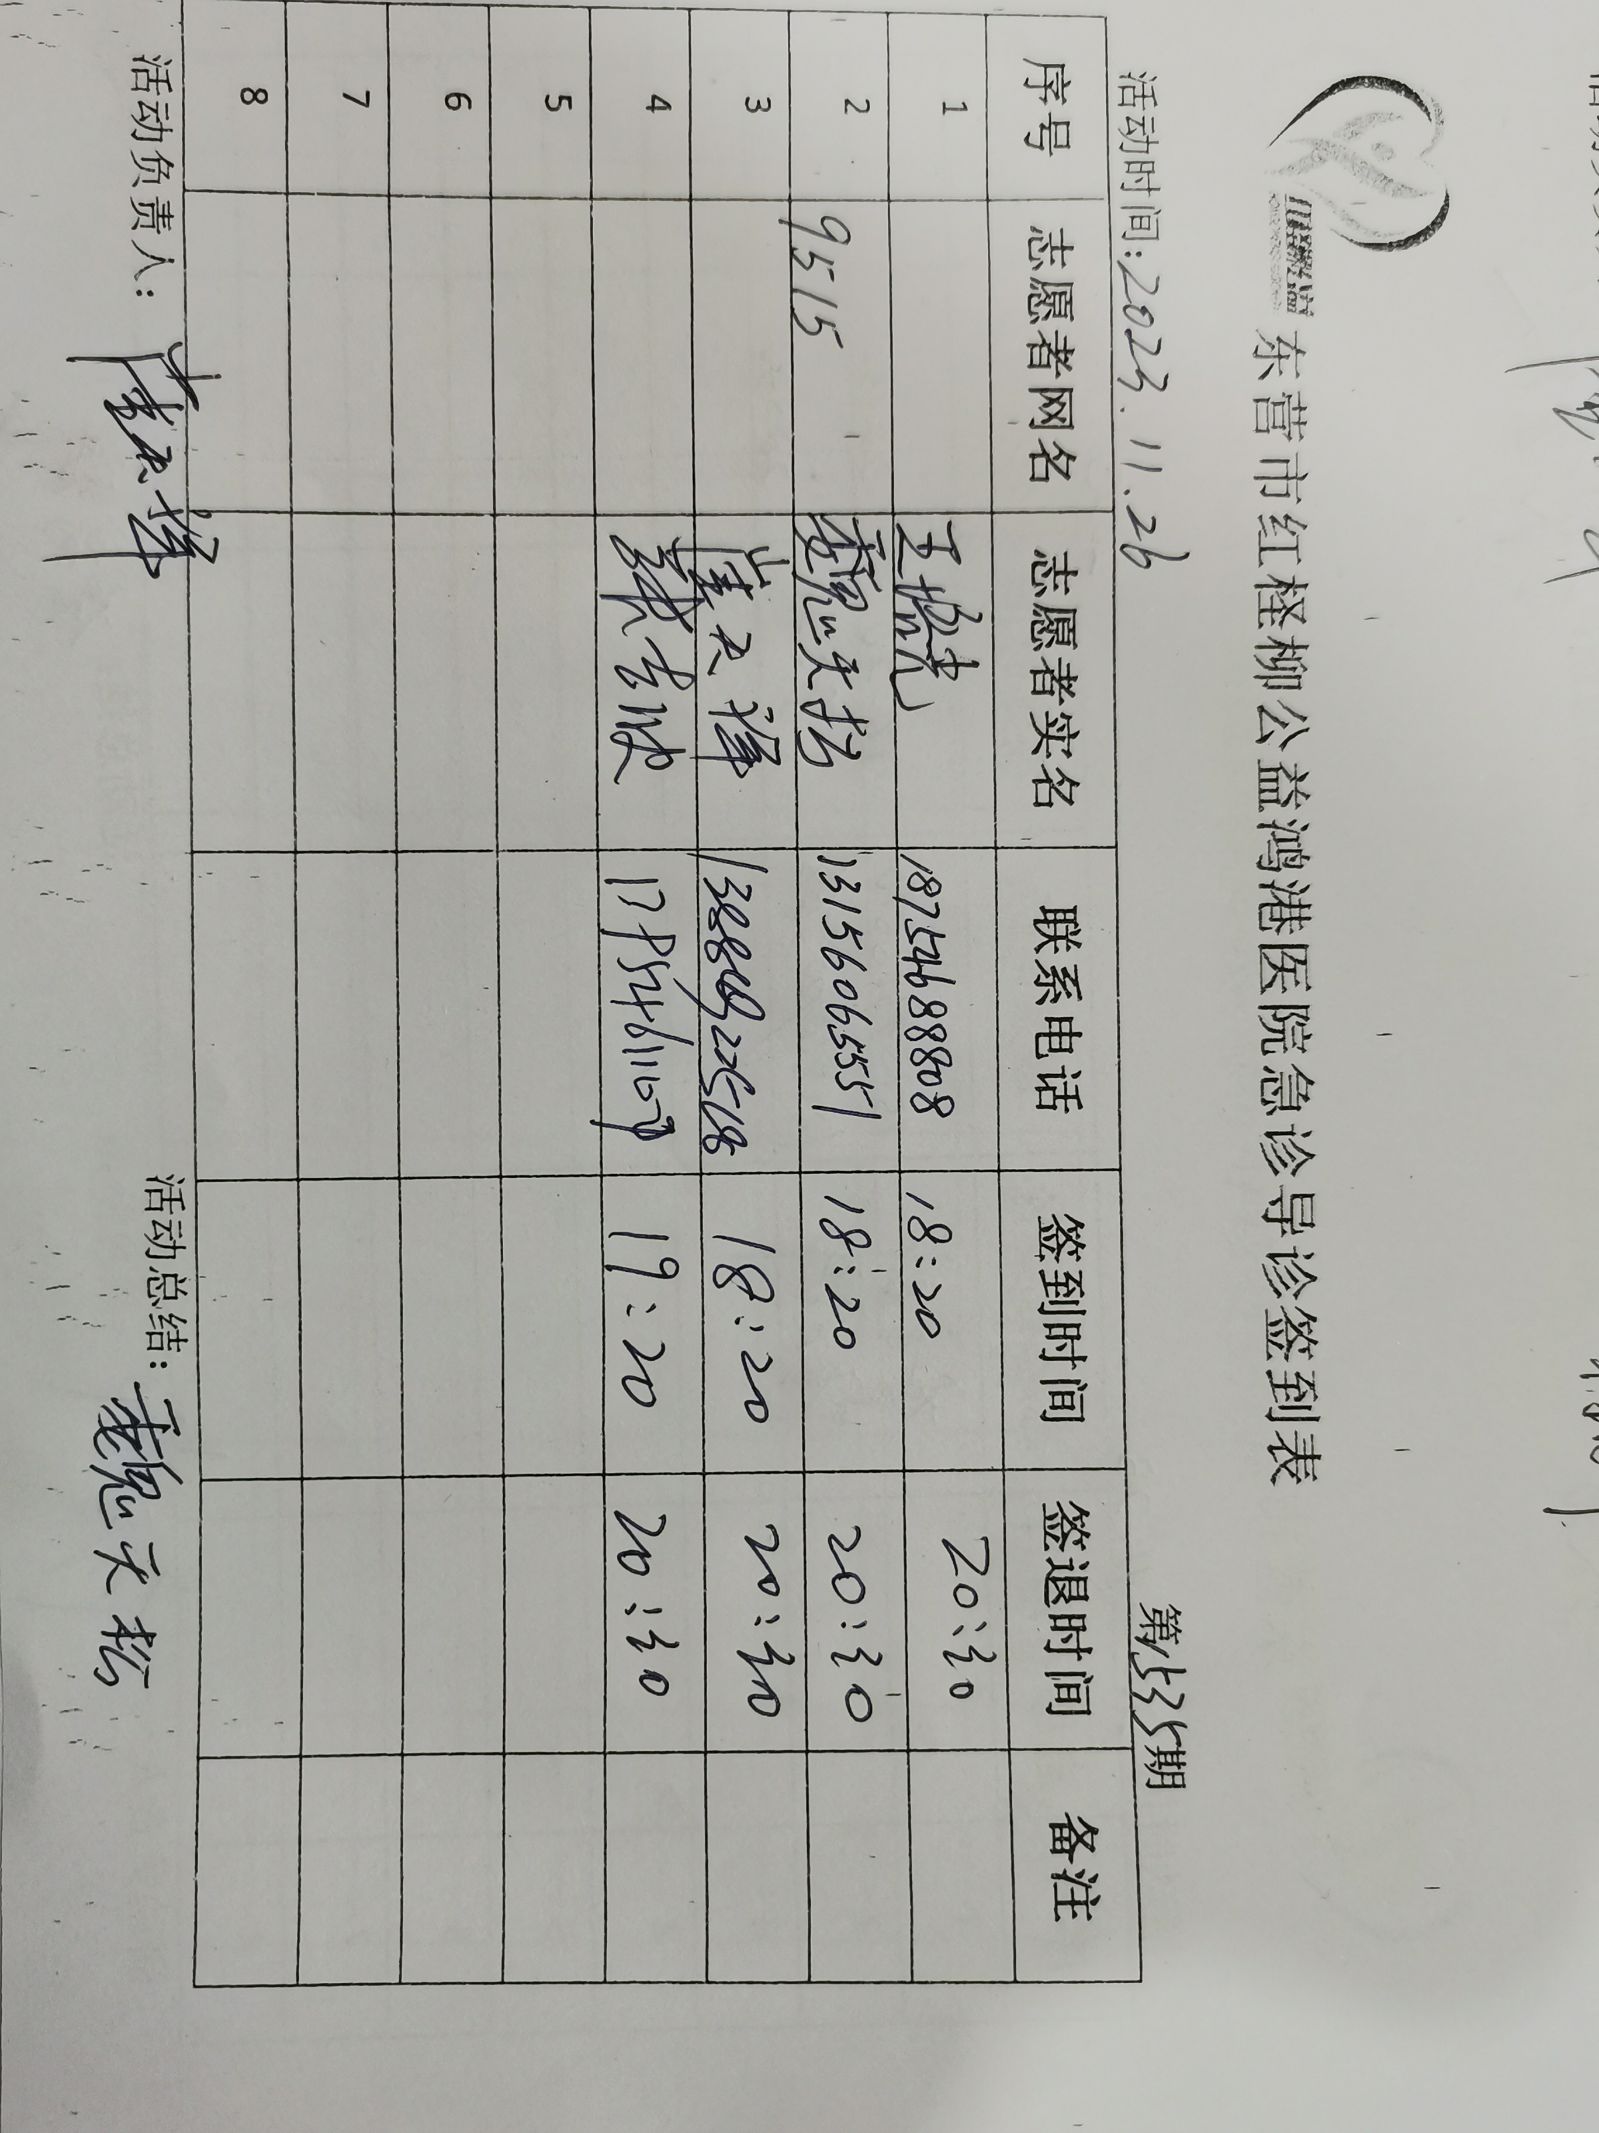 东营市红柽柳公益鸿港医院急诊导诊签到表
活动时间:2023.11.26 第 期
序号 志愿者网名 志愿者实名 联系电话 签到时间 签退时间 备注
1 18754688808 18:20 20:30
2 9515 魏天松 13156065551 18:20 20:30
3 18:20 20:30
4 19:20 20:30
5
6
7
8
活动负责人: 活动总结: 魏天松